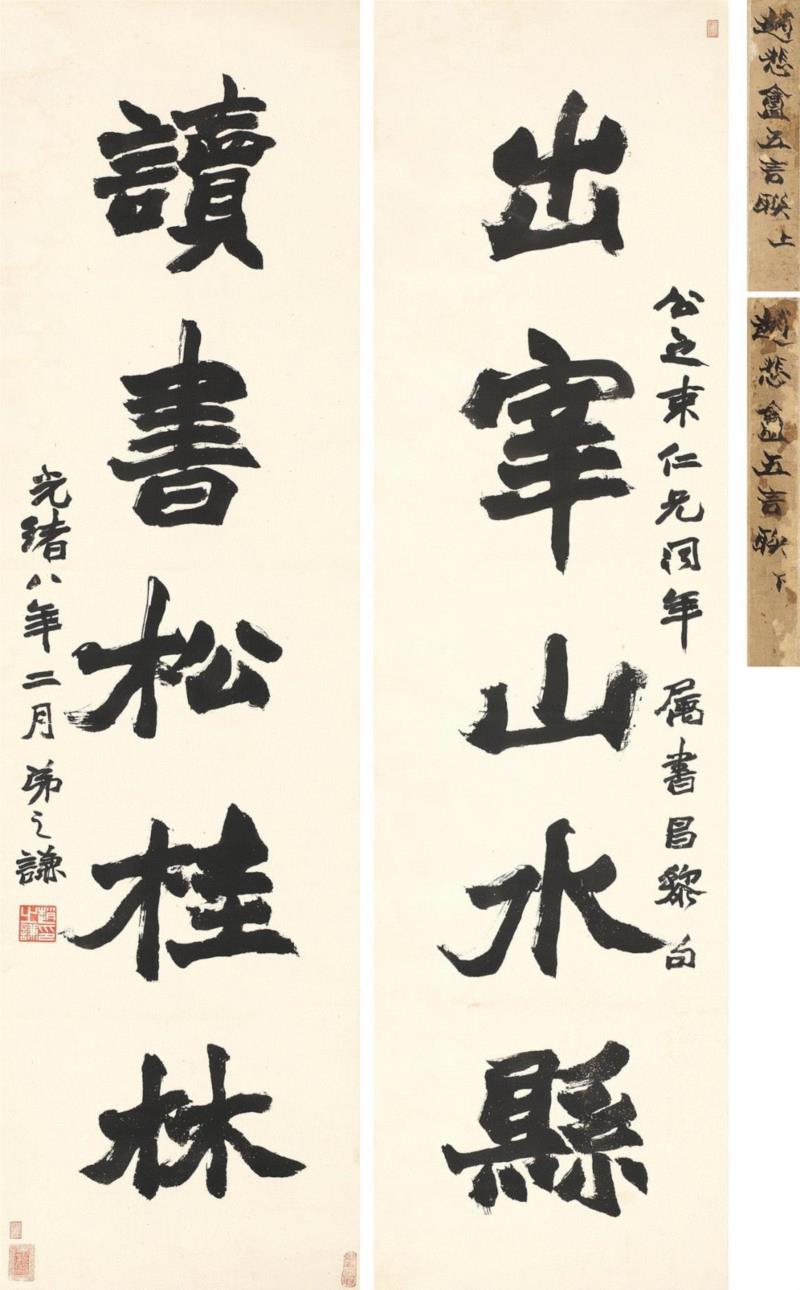 出宰山水縣
公之束仁兄同年屬書昌黎句
讀書松桂林
光緒八年二月弟之謙
趙之謙印
趙悲盦五言聯上
趙悲盦五言聯下